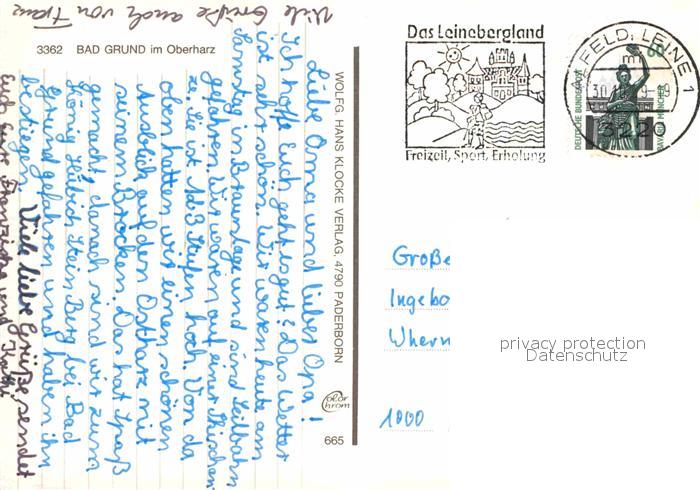 3362 BAD GRUND im Oberharz
WOLFG. HANS KLOCKE VERLAG, 4790 PADERBORN
Color
chrom
665
Das Leinebergland
Freizeit, Sport, Erholung
FELD, LEINE 1
3220
DEUTSCHE BUNDESPOST
60
MÜNCHEN
Liebe Oma und lieber Opa!
Ich hoffe Euch geht es gut? Das Wetter
ist sehr schön. Wir waren heute am
Samstag in Braunlage und sind Seilbahn
gefahren. Wir waren auf einer
ze. Sie ist 123 Stufen hoch. Von da
oben hatten wir einen schönen
Ausblick auf den Ostharz mit
seinem Brocken. Das hat Spaß
gemacht, danach sind wir zum
König Hübich Stein Berg bei Bad
Grund gefahren und haben ihn
bestiegen. Viele liebe Grüße, sendet
Euch eure Franziska und
Viele Grüße auch von
Große
Ingebo
1000
privacy protection
Datenschutz